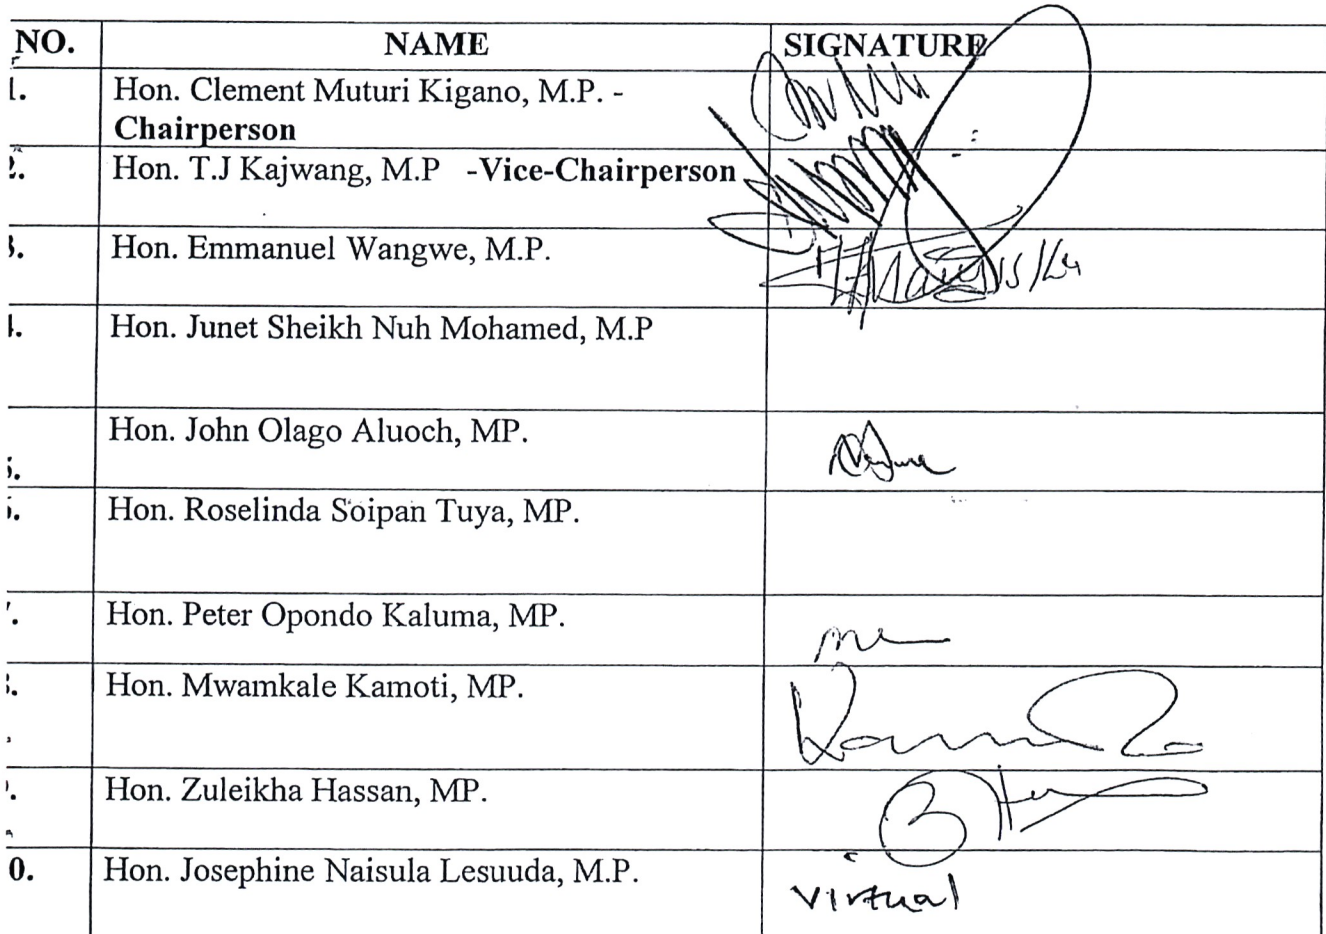 NO. NAME SIGNATURE
1. Hon. Clement Muturi Kigano, M.P. -
Chairperson
2. Hon. T.J Kajwang, M.P -Vice-Chairperson
3. Hon. Emmanuel Wangwe, M.P.
4. Hon. Junet Sheikh Nuh Mohamed, M.P
Hon. John Olago Aluoch, MP.
5.
6. Hon. Roselinda Soipan Tuya, MP.
7. Hon. Peter Opondo Kaluma, MP.
8. Hon. Mwamkale Kamoti, MP.
9. Hon. Zuleikha Hassan, MP.
0. Hon. Josephine Naisula Lesuuda, M.P.
Virtual